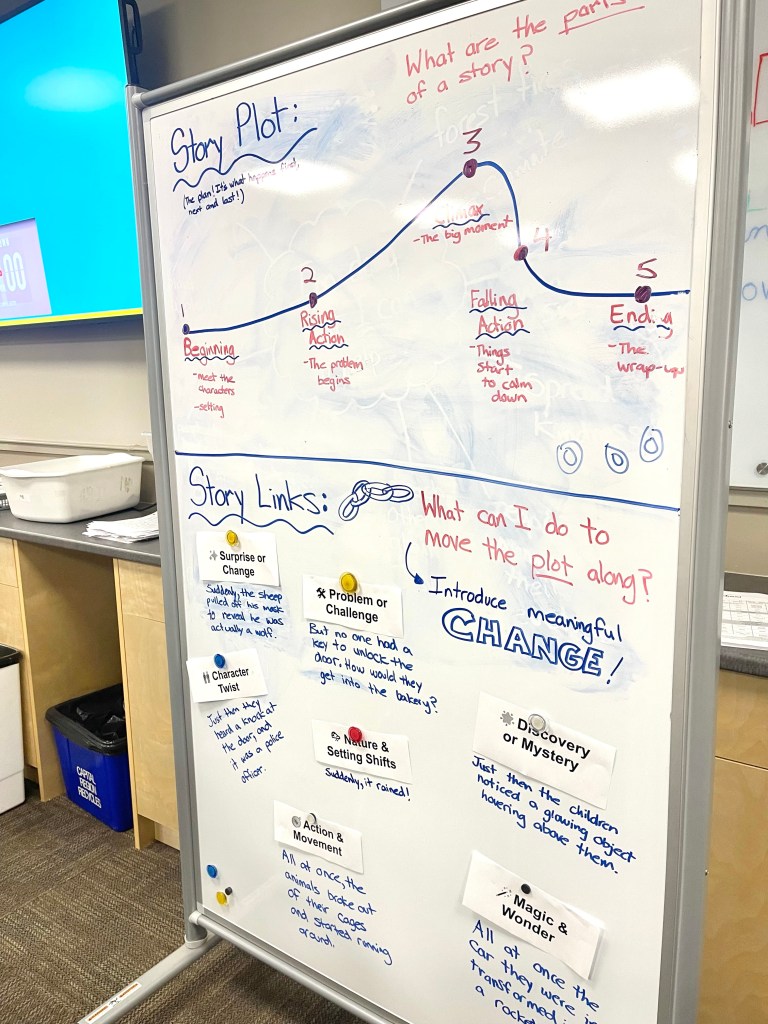 What are the parts
of a story?
Story Plot:
(The plan! It's what happens first,
next and last!)
1
2
3
4
5
Beginning
-meet the
characters
-setting
Rising
Action
-The problem
begins
Climax
-The big moment
Falling
Action
-Things
start
to calm
down
Ending
-The
wrap-up
Story Links:
What can I do to
move the plot along?
Introduce meaningful
CHANGE!
Surprise or
Change
Suddenly, the sheep
pulled off his mask
to reveal he was
actually a wolf.
Problem or
Challenge
But no one had a
key to unlock the
door. How would they
get into the bakery?
Character
Twist
Just then they
heard a knock at
the door, and
it was a police
officer.
Nature &
Setting Shifts
Suddenly, it rained!
Discovery
or Mystery
Just then the children
noticed a glowing object
hovering above them.
Action &
Movement
All at once, the
animals broke out
of their cages
and started running
around.
Magic &
Wonder
All at once the
car they were in
transformed
a rocket
CAPITAL
REGION
RECYCLES
:00